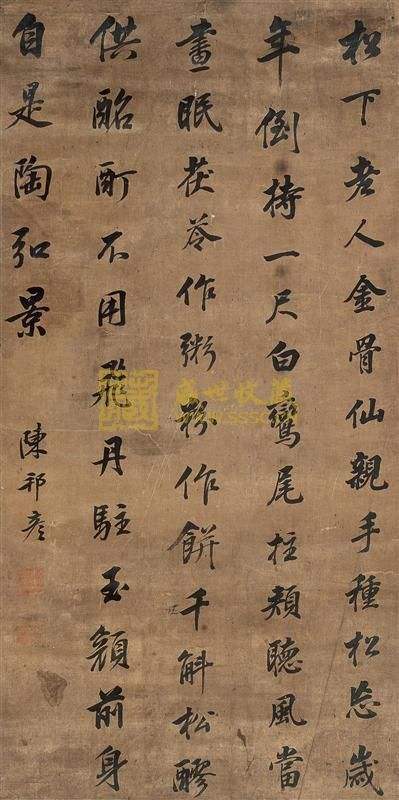 松下老人金骨仙親手種松忘歲
年倒持一尺白鸞尾拄頰聽風當
晝眠茯苓作粥粉作餅千斛松醪
供酩酊不用飛丹駐玉顏前身
自是陶弘景
陳邦彥
盛世收藏